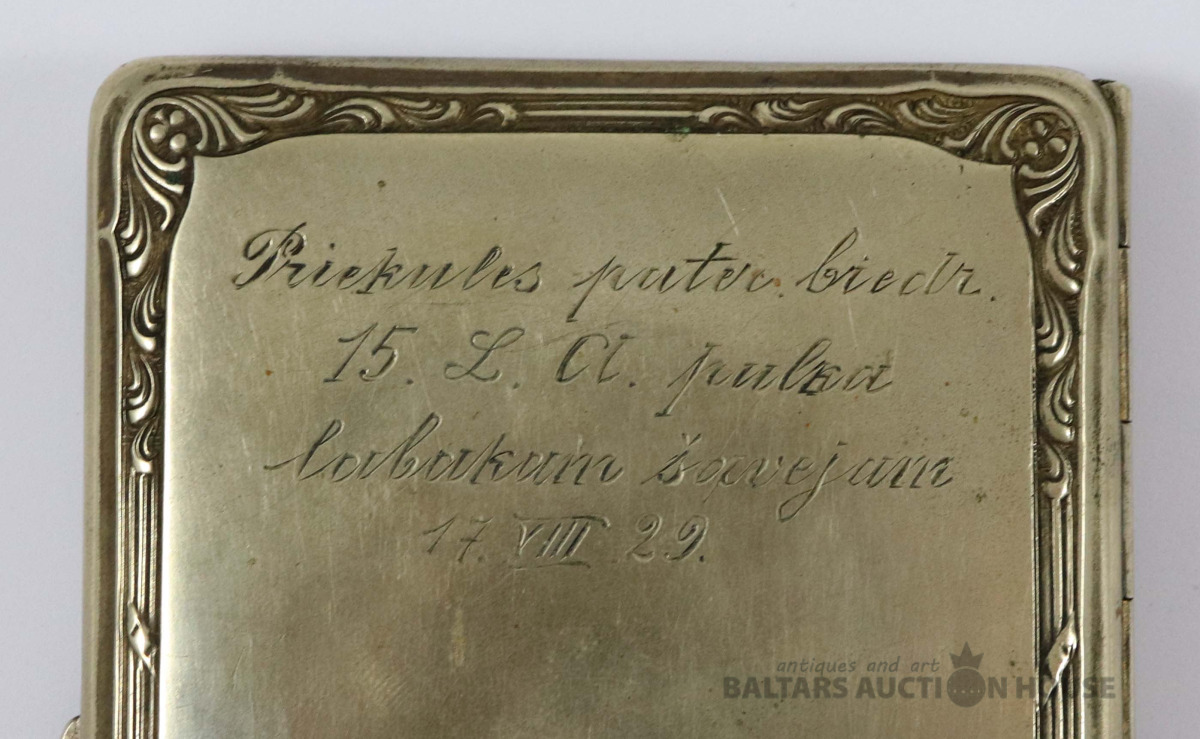 Priekules pater. biedr.
15. L. A. pulka
labakam šavejam
17. VIII 29.
antiques and art
BALTARS AUCTION HOUSE